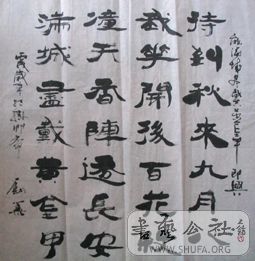 即興
待到秋來九月
我花開後百花
衝天香陣透長安
滿城盡戴黃金甲
書藝公社
WWW.SHUFA.ORG